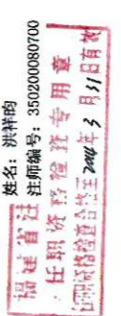 姓名：洪祥昀
注师编号：350200080700
福建省注
任职资格检查专用章
任职资格检查合格至2024年3月31日有效